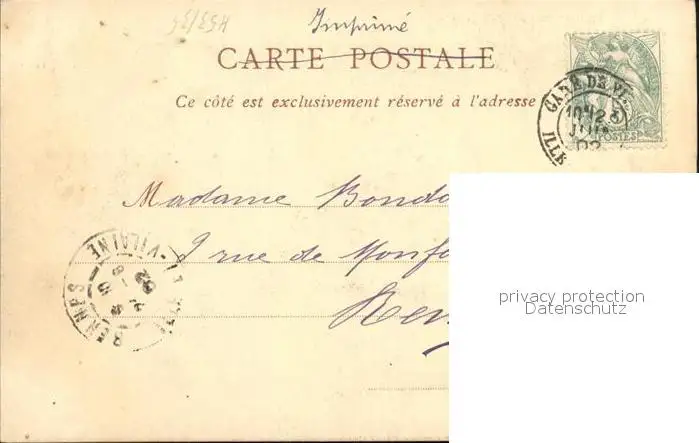 Imprimé
CARTE POSTALE
Ce côté est exclusivement réservé à l'adresse
GARE DE
ILLE
POSTES
Madame Bondo
rue de Monfo
Ren
RENNES
VILAINE
02
privacy protection
Datenschutz